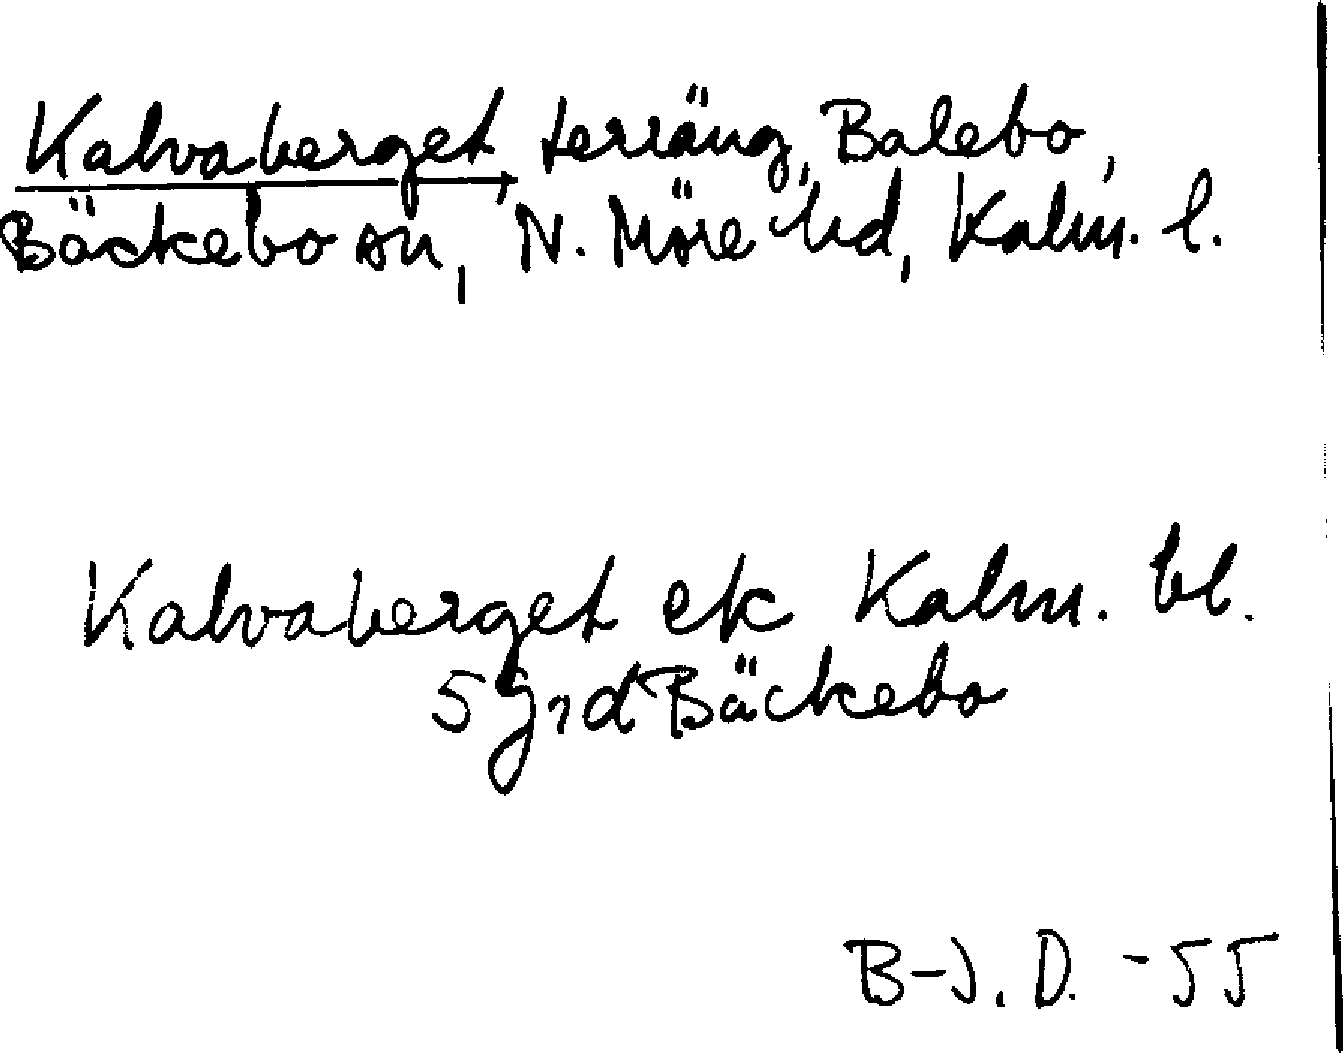 Kalvaberget, terräng, Balebo,
Bäckebo sn, N. Möre hd, Kalm. l.
Kalvaberget ek Kalm. bl.
5 Bäckebo
B-J. D. -55